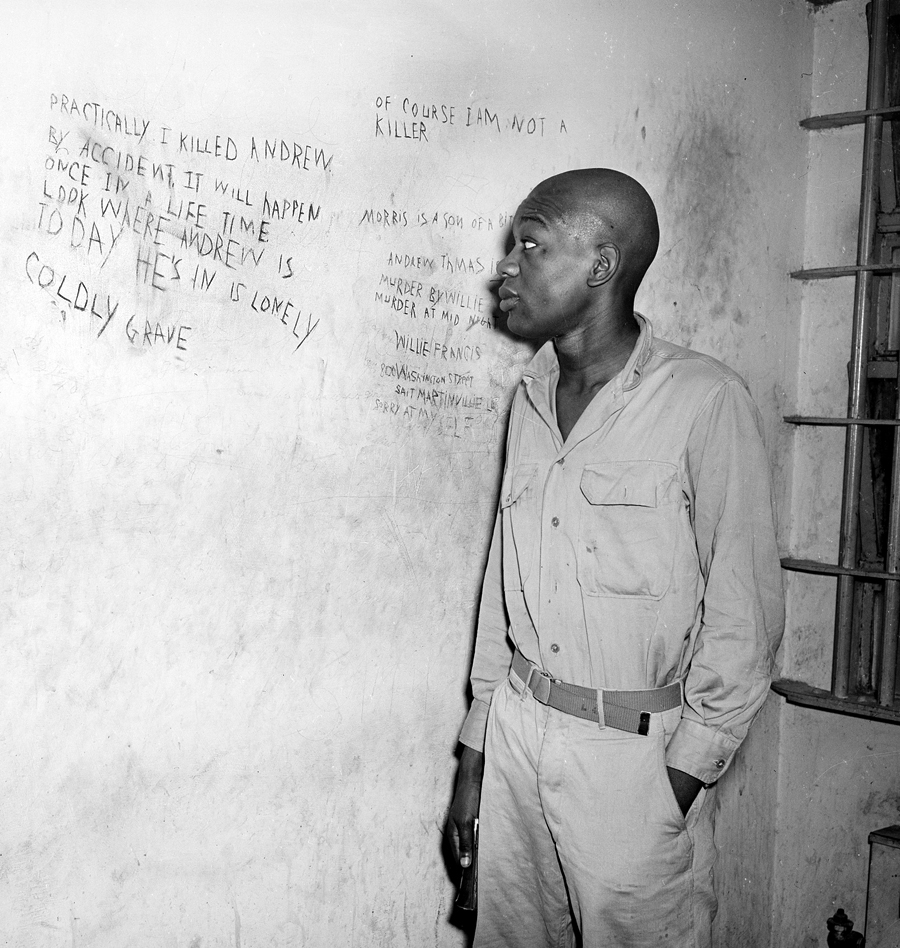 PRACTICALLY I KILLED ANDREW
BY ACCIDENT. IT WILL HAPPEN
ONCE IN A LIFE TIME
LOOK WHERE ANDREW IS
TODAY HE'S IN IS LONELY
COLDLY GRAVE
OF COURSE I AM NOT A
KILLER
MORRIS IS A SON OF A BIT
ANDREW THMAS
MURDER BY WILLIE
MURDER AT MID NIGHT
WILLIE FRANCIS
800 WASHINGTON STREET
SAIT MARTINVILLE LA
SORRY AT MY SELF